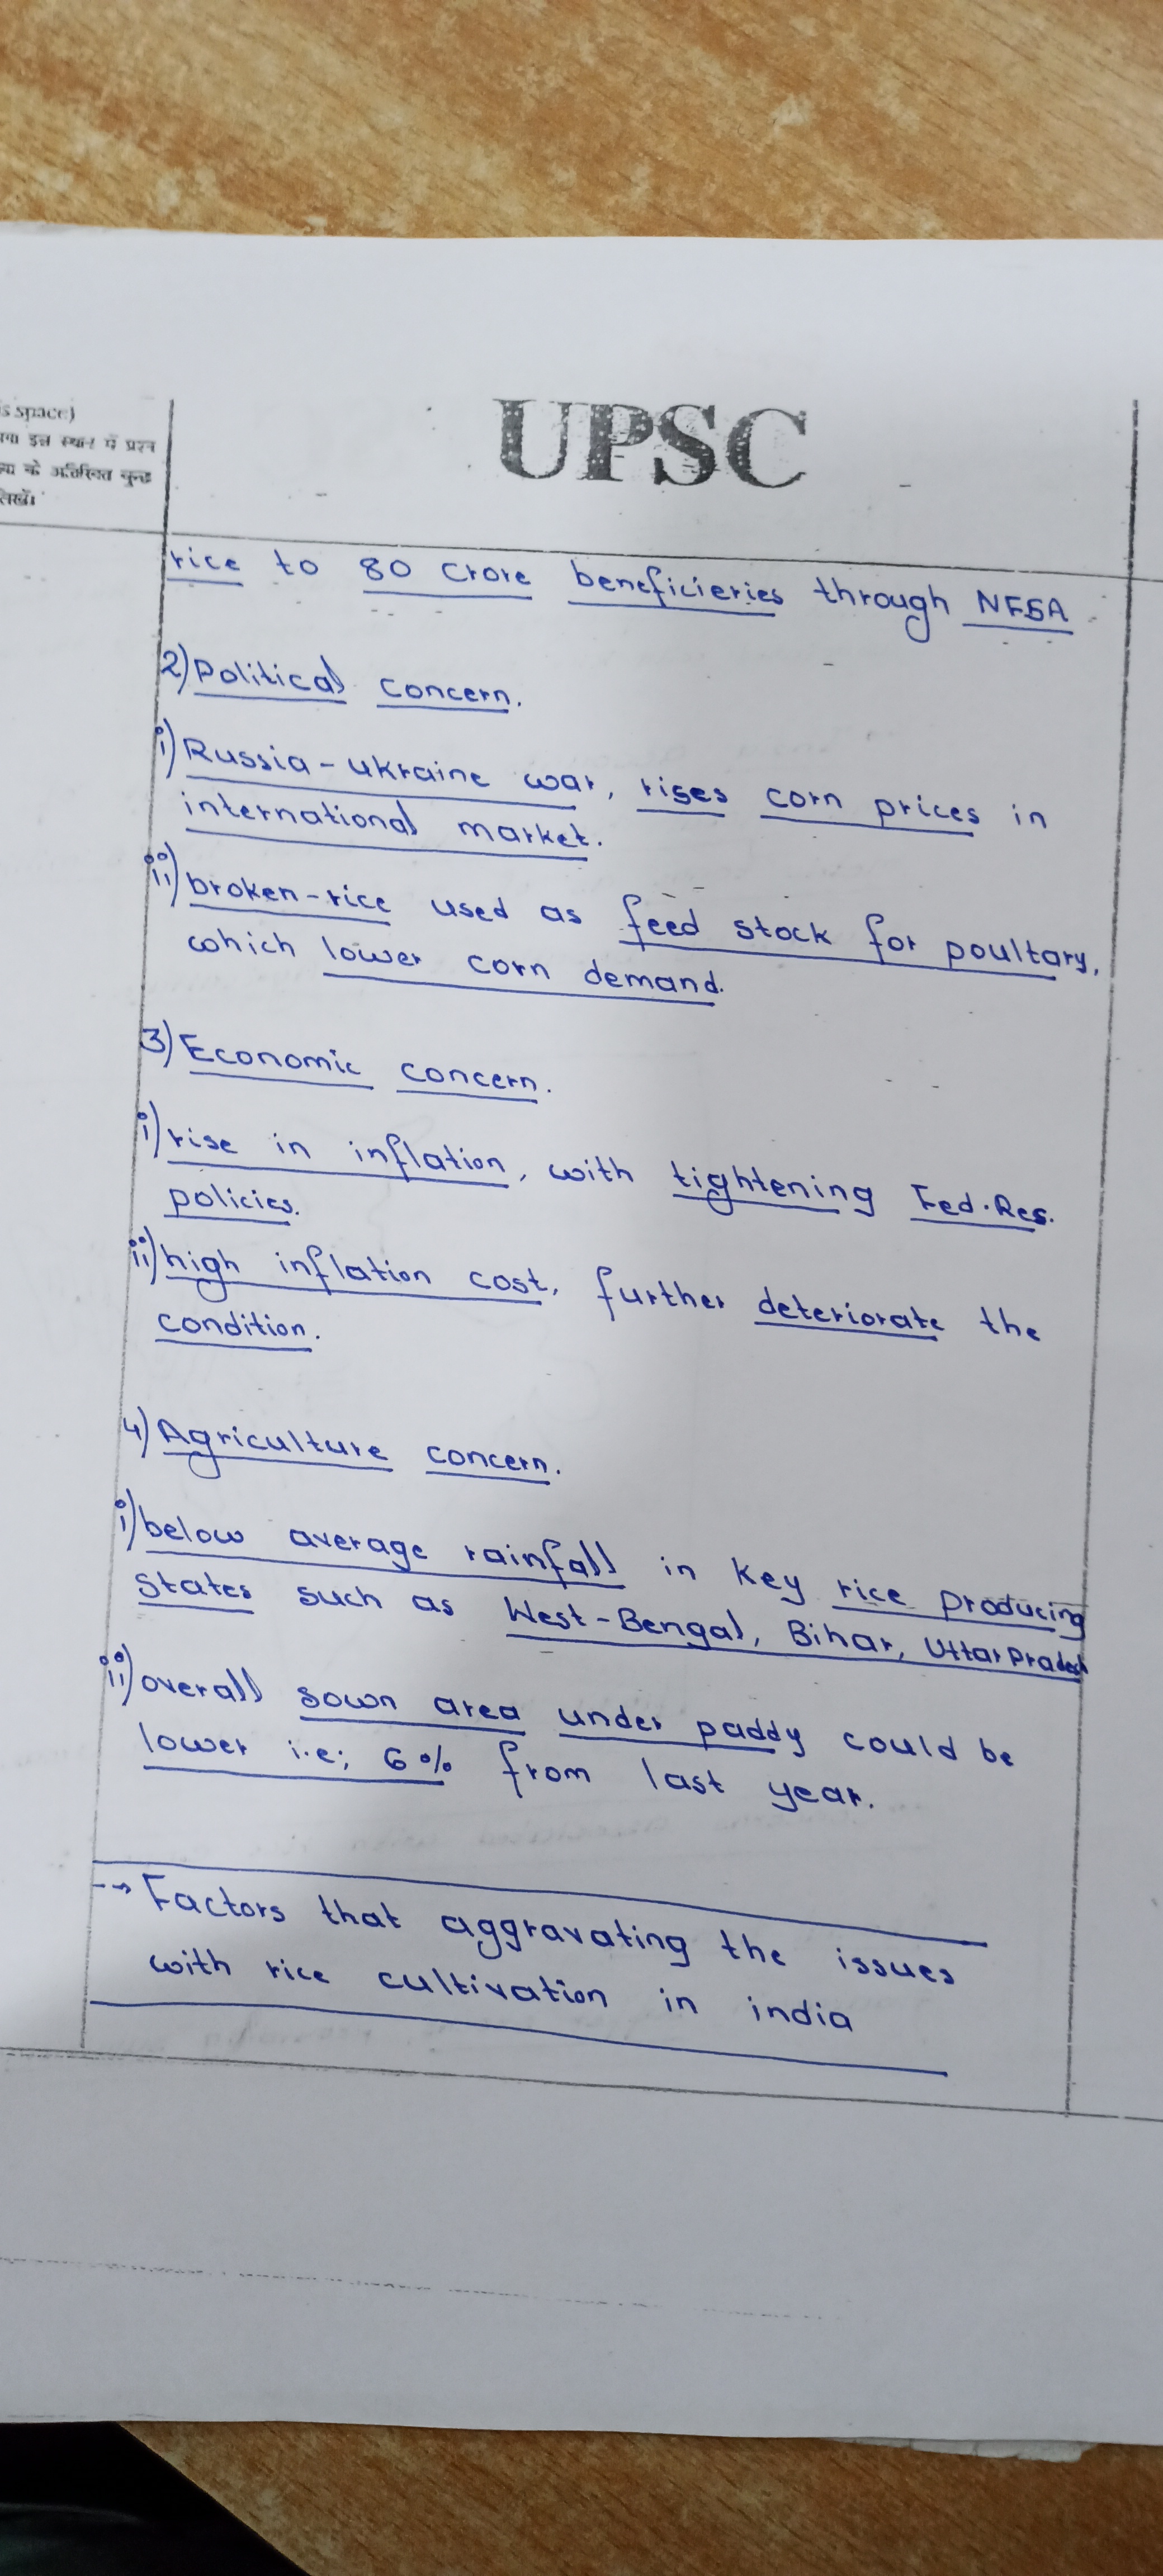 s space)
इस स्थान में प्रश्न
या के अतिरिक्त कुछ
लिखें।
UPSC
rice to 80 crore beneficieries through NFSA
2) Political concern.
i) Russia-ukraine war, rises corn prices in
international market.
ii) broken-rice used as feed stock for poultary,
which lower corn demand.
3) Economic concern.
i) rise in inflation, with tightening Fed.Res.
policies.
ii) high inflation cost, further deteriorate the
condition.
4) Agriculture concern.
i) below average rainfall in key rice producing
states such as West-Bengal, Bihar, Uttar Pradesh
ii) overall sown area under paddy could be
lower i.e; 6% from last year.
--> Factors that aggravating the issues
with rice cultivation in india